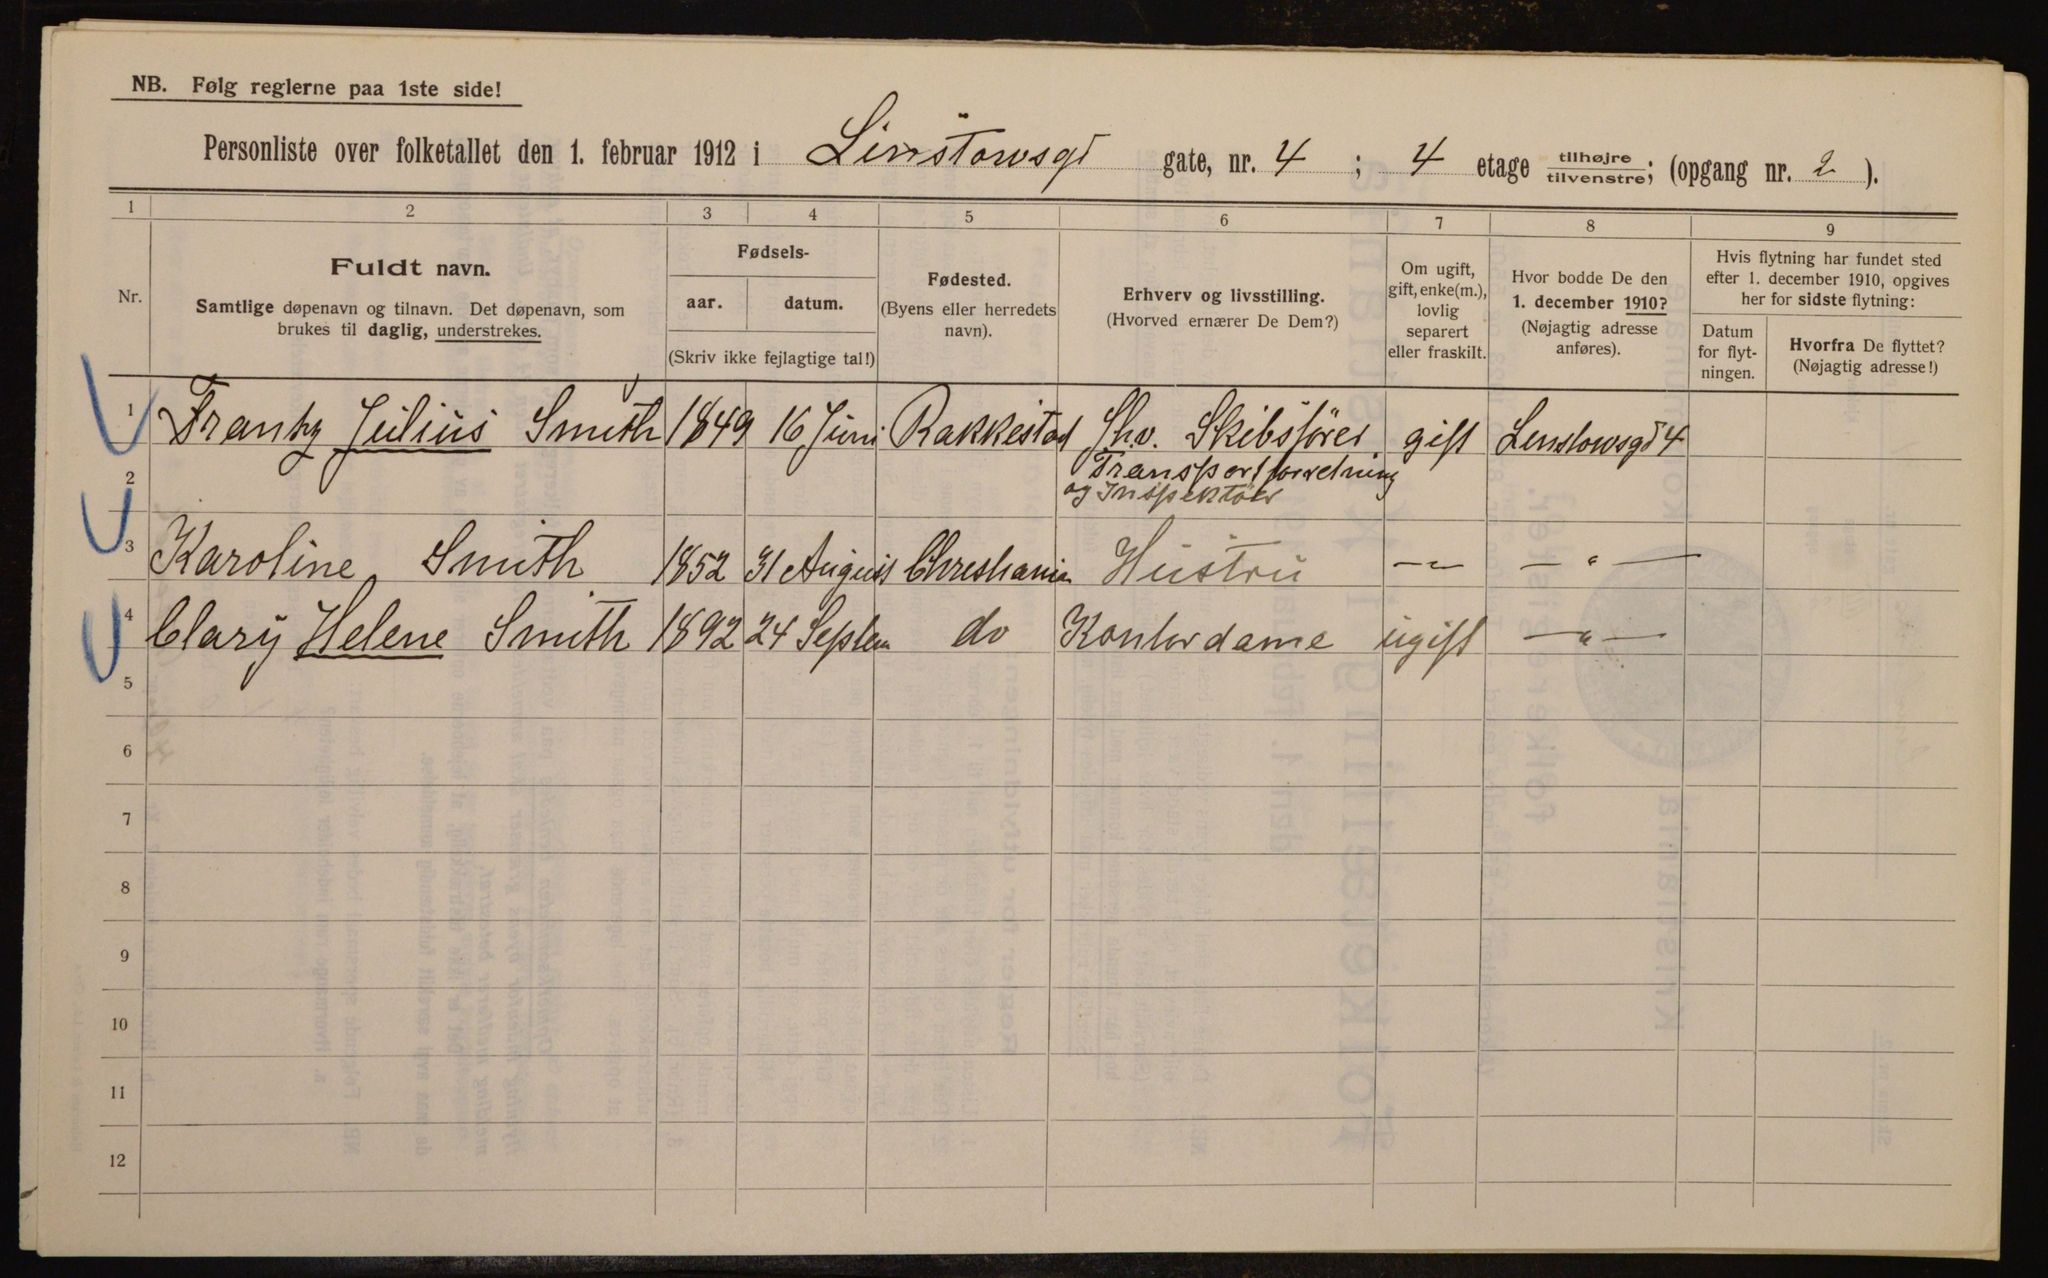 NB. Følg reglerne paa 1ste side!
Personliste over folketallet den 1. februar 1912 i Linstowsgd gate, nr. 4 ; 4 etage tilhøjre tilvenstre; (opgang nr. 2 ).
1 2 3 4 5 6 7 8 9
Nr.
Fuldt navn.
Samtlige døpenavn og tilnavn. Det døpenavn, som
brukes til daglig, understrekes.
Fødsels-
aar. datum.
(Skriv ikke fejlagtige tal!)
Fødested.
(Byens eller herredets
navn).
Erhverv og livsstilling.
(Hvorved ernærer De Dem?)
Om ugift,
gift, enke(m.),
lovlig
separert
eller fraskilt.
Hvor bodde De den
1. december 1910?
(Nøjagtig adresse
anføres).
Hvis flytning har fundet sted
efter 1. december 1910, opgives
her for sidste flytning:
Datum
for flyt-
ningen.
Hvorfra De flyttet?
(Nøjagtig adresse!)
1 Frantz Julius Smith 1849 16 Juni Rakkestad Fhv. Skibsfører gift Linstowsgd 4
2 Transportforretning
og Inspektør
3 Karoline Smith 1852 31 August Christiania Hustru -〃- -〃-
4 Clary Helene Smith 1892 24 Septem do Kontordame ugift -〃-
5
6
7
8
9
10
11
12